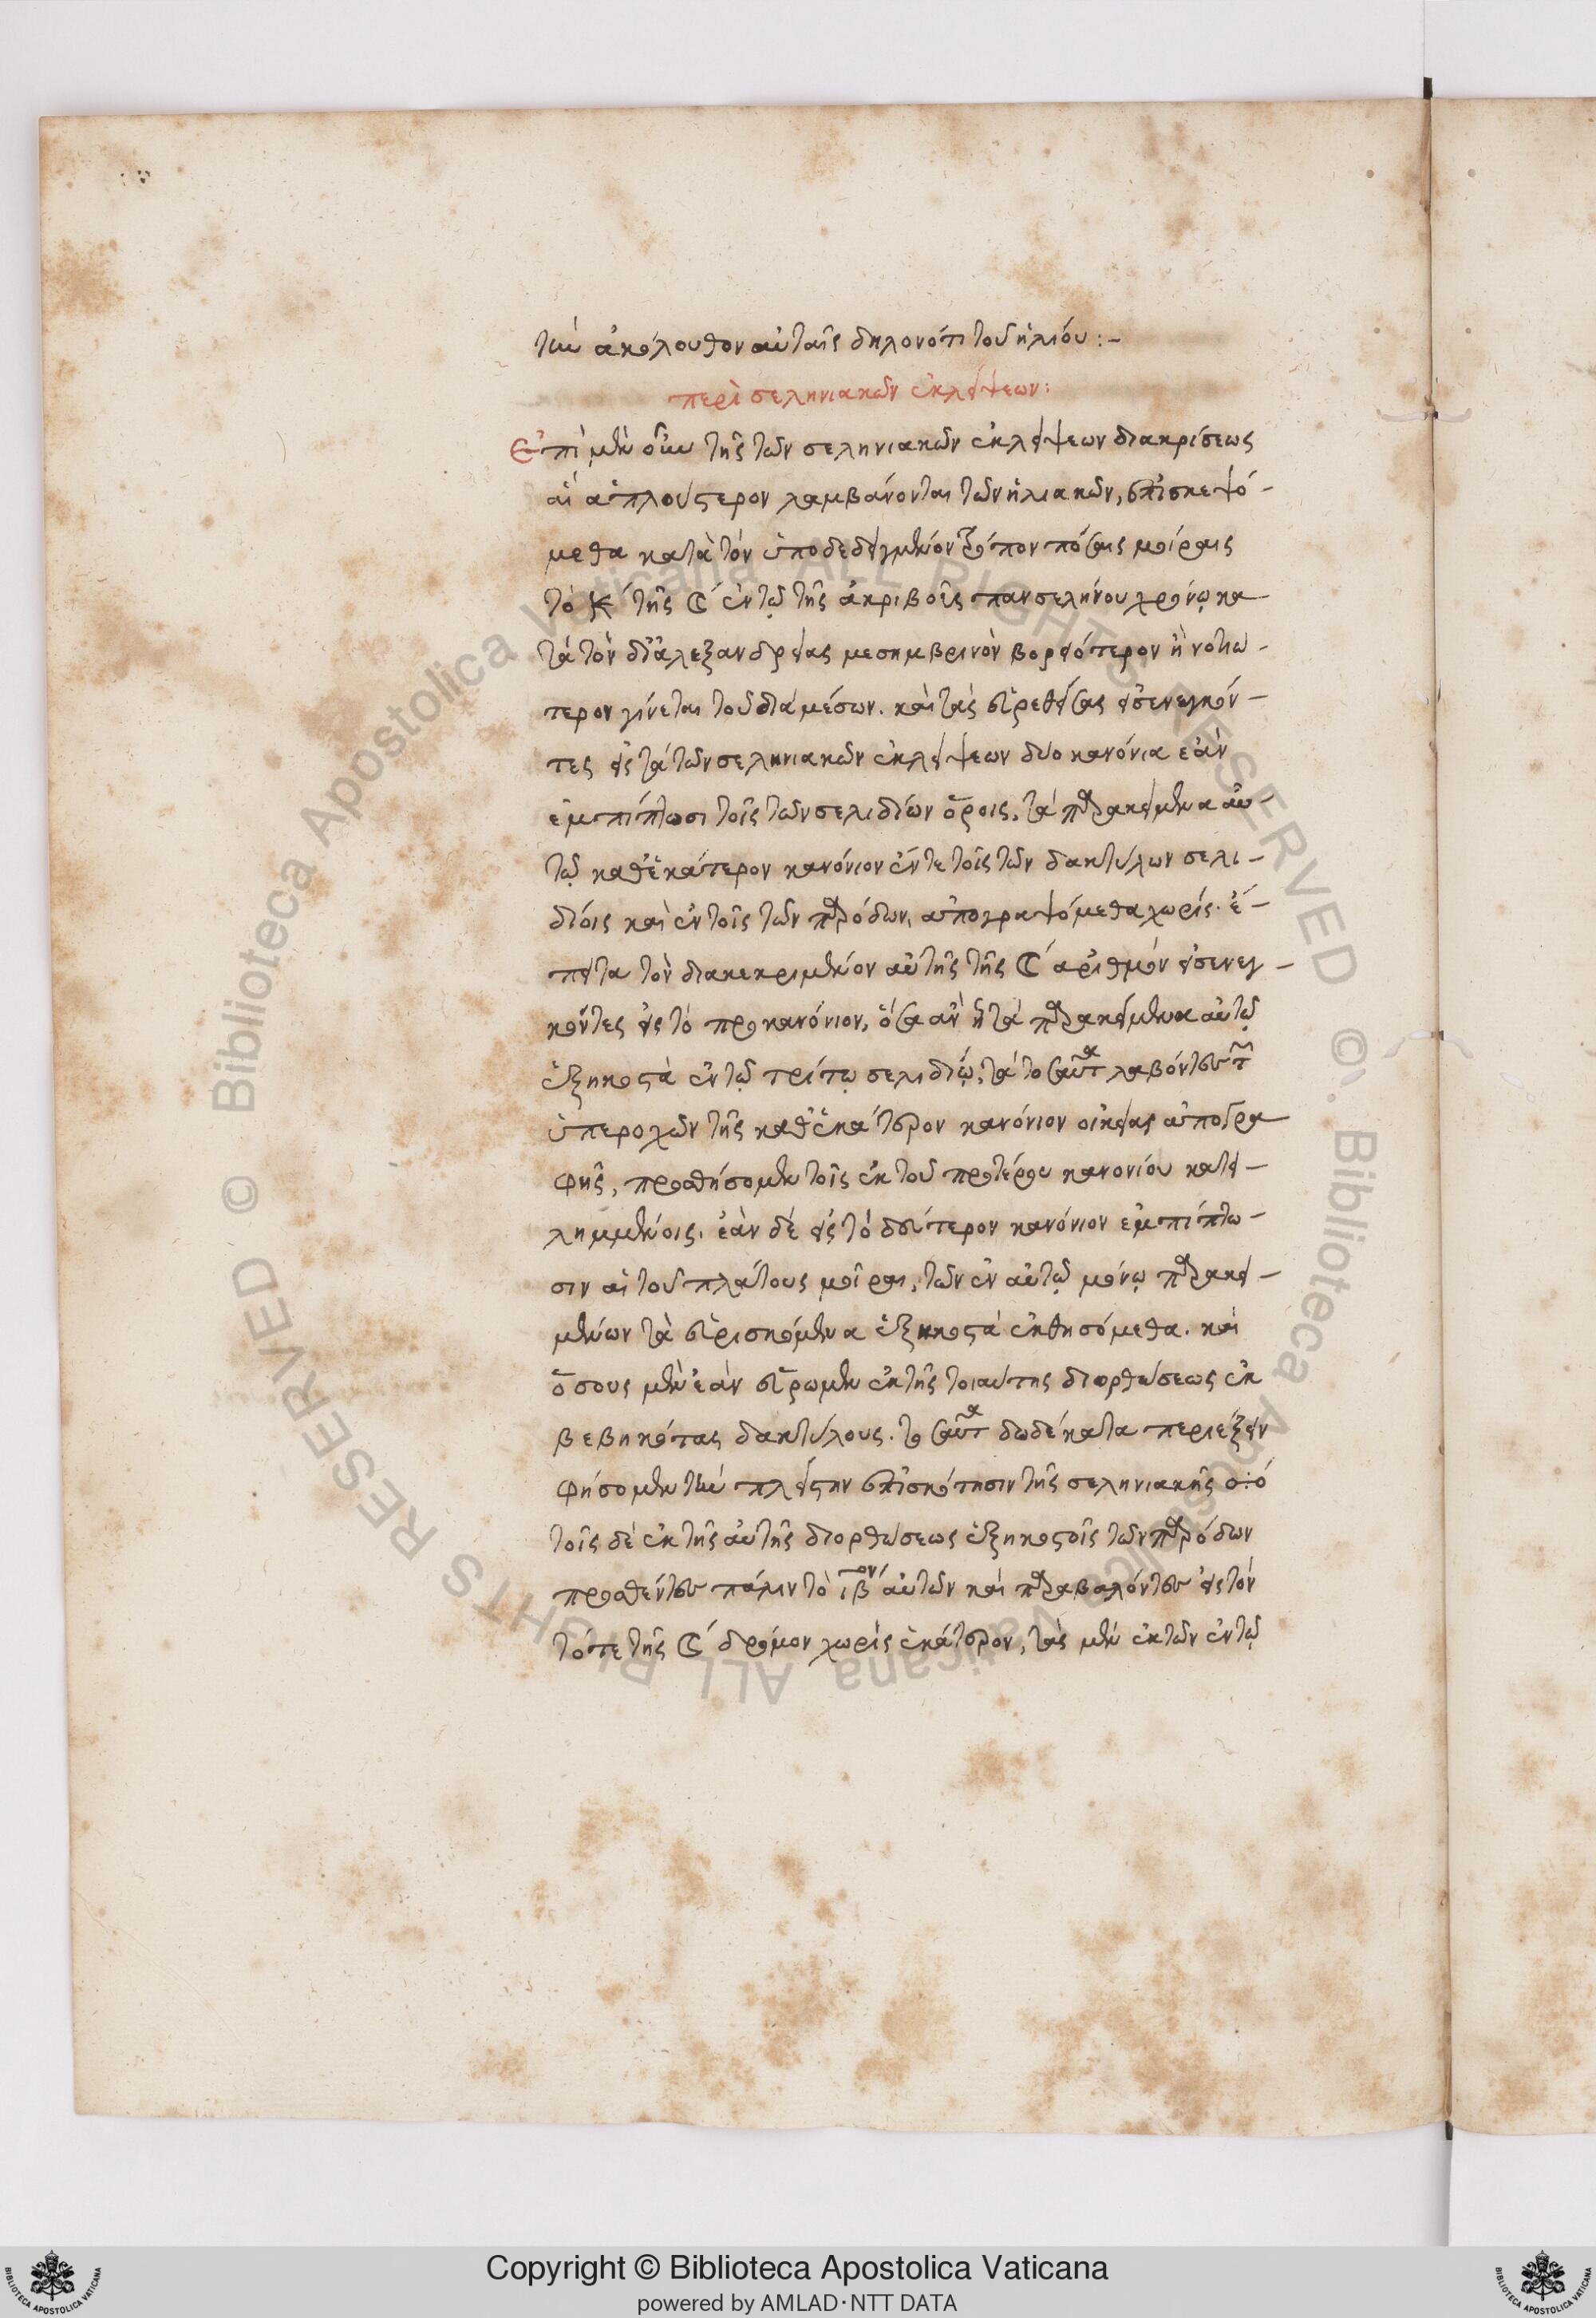 τὴν ἀκόλουθον αὐταῖς δηλονότι τοῦ ἡλίου:–
περὶ σεληνιακῶν ἐκλείψεων:
Ἐπὶ μὲν οὖν τῆς τῶν σεληνιακῶν ἐκλείψεων διακρίσεως
αἳ ἁπλούστερον λαμβάνονται τῶν ἡλιακῶν, ἐπισκεψό–
μεθα κατὰ τὸν ὑποδεδειγμένον τρόπον πόσαις μοίραις
τὸ κέ τῆς ☾ ἐν τῷ τῆς ἀκριβοῦς πανσελήνου χρόνῳ κα–
τὰ τὸν δι' ἀλεξανδρείας μεσημβρινὸν βορειότερον ἢ νοτιώ–
τερον γίνεται τοῦ διὰ μέσων. καὶ τὰς εὑρεθείσας εἰσενεγκόν–
τες εἰς τὰ τῶν σεληνιακῶν ἐκλείψεων δύο κανόνια ἐὰν
ἐμπίπτωσι τοῖς τῶν σελιδίων ὅροις, τὰ παρακείμενα αὐ–
τῷ καθ' ἑκάτερον κανόνιον ἔν τε τοῖς τῶν δακτύλων σελι–
δίοις καὶ ἐν τοῖς τῶν παρόδων, ἀπογραψόμεθα χωρίς. ἔ–
πειτα τὸν διακεκριμένον αὐτῆς τῆς ☾ ἀριθμὸν εἰσενεγ–
κόντες εἰς τὸ προκανόνιον, ὅσα ἂν ᾖ τὰ παρακείμενα αὐτῷ
ἑξηκοστὰ ἐν τῷ τρίτῳ σελιδίῳ, τὰ τοσαῦτα λαβόντες τῶν
ὑπεροχῶν τῆς καθ' ἑκάτερον κανόνιον οἰκείας ἀπογρα
φῆς, προσθήσομεν τοῖς ἐκ τοῦ προτέρου κανονίου κατει–
λημμένοις. ἐὰν δὲ εἰς τὸ δεύτερον κανόνιον ἐμπίπτω–
σιν αἱ τοῦ πλάτους μοῖραι, τῶν ἐν αὐτῷ μόνῳ παρακει–
μένων τὰ εὑρισκόμενα ἑξηκοστὰ ἐκθησόμεθα. καὶ
ὅσους μὲν ἐὰν εὕρωμεν ἐκ τῆς τοιαύτης διορθώσεως ἐκ
βεβηκότας δακτύλους. τοσαῦτα δωδέκατα περιέξειν
φήσομεν τὴν πλείστην ἐπισκότησιν τῆς σεληνιακῆς
τοῖς δὲ ἐκ τῆς αὐτῆς διορθώσεως ἑξηκοστοῖς τῶν παρόδων
προσθέντες πάλιν τὸ ιβον αὐτῶν καὶ παραβαλόντες εἰς τὸν
τότε τῆς ☾ δρόμον χωρὶς ἑκάτερον, τὰς μὲν ἐκ τῶν ἐν τῷ
© Biblioteca Apostolica Vaticana ALL RIGHTS RESERVED
© Biblioteca Apostolica Vaticana ALL RIGHTS RESERVED
Copyright © Biblioteca Apostolica Vaticana
powered by AMLAD·NTT DATA
BIBLIOTECA APOSTOLICA VATICANA
BIBLIOTECA APOSTOLICA VATICANA